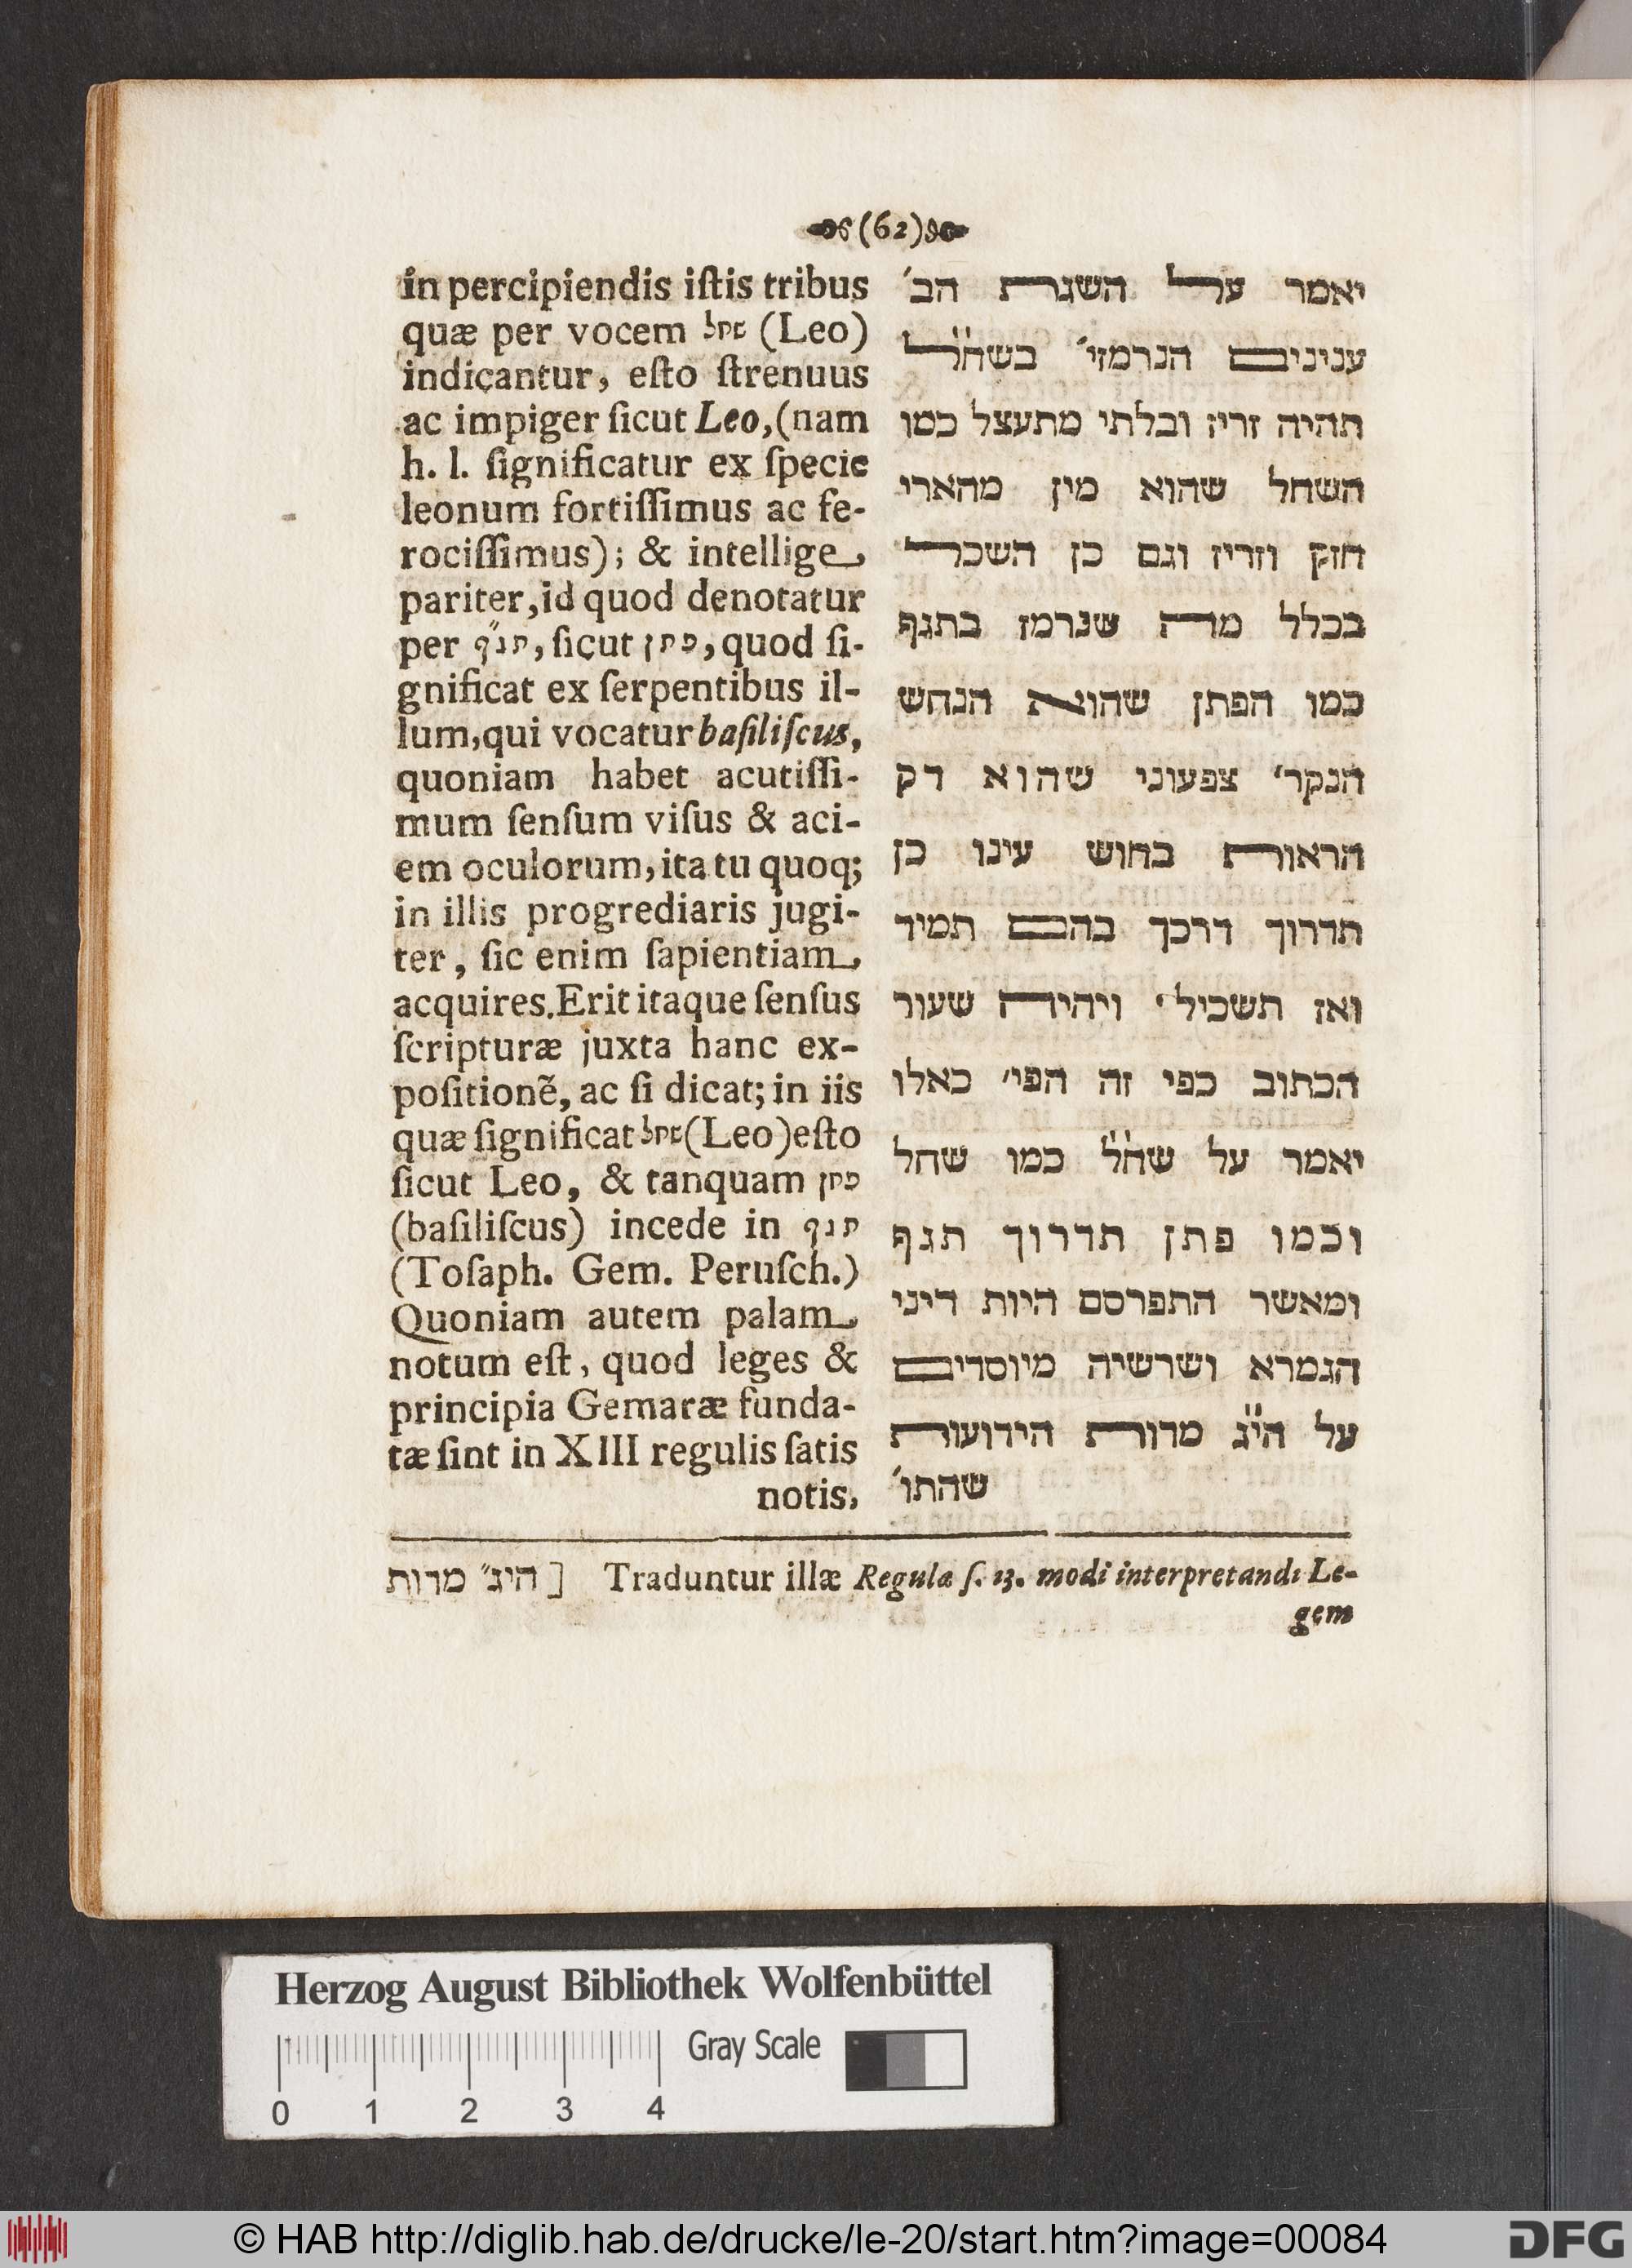 (62)
in percipiendis iſtis tribus
quæ per vocem שחל (Leo)
indicantur, eſto ſtrenuus
ac impiger ſicut Leo, (nam
h. l. ſignificatur ex ſpecie
leonum fortiſſimus ac fe-
rociſſimus); & intellige
pariter, id quod denotatur
per תנ״ף, ſicut פתן, quod ſi-
gnificat ex ſerpentibus il-
lum, qui vocatur baſiliſcus,
quoniam habet acutiſſi-
mum ſenſum viſus & aci-
em oculorum, ita tu quoq;
in illis progrediaris jugi-
ter, ſic enim ſapientiam
acquires. Erit itaque ſenſus
ſcripturæ juxta hanc ex-
poſitionẽ, ac ſi dicat; in iis
quæ ſignificat שחל (Leo) eſto
ſicut Leo, & tanquam פתן
(baſiliſcus) incede in תנף
(Toſaph. Gem. Peruſch.)
Quoniam autem palam
notum eſt, quod leges &
principia Gemaræ funda-
tæ ſint in XIII regulis ſatis
notis,
יאמר על השגת הב׳
ענינים הנרמזי׳ בשח״ל
תהיה זריז ובלתי מתעצל כמו
השחל שהוא מין מהארי
חזק וזריז וגם כן השכל
בכלל מה שנרמז בתגף
כמו הפתן שהוא הנחש
הנקר׳ צפעוני שהוא דק
הראות בחוש עינו כן
תדרוך דרכך בהם תמיד
ואז תשכיל׳ ויהיה שעור
הכתוב כפי זה הפי׳ כאלו
יאמר על שח״ל כמו שחל
וכמו פתן תדרוך תגף
ומאשר התפרסם היות דיני
הגמרא ושרשיה מיוסדים
על הי״ג מדות הידועות
שהתו׳
היג״ מדות ] Traduntur illæ Regulæ ſ. 13. modi interpretandi Le-
gem
Herzog August Bibliothek Wolfenbüttel
Gray Scale
0 1 2 3 4
© HAB http://diglib.hab.de/drucke/le-20/start.htm?image=00084
DFG